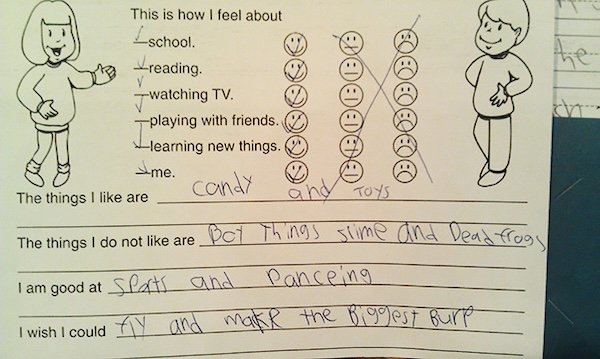 This is how I feel about
school.
reading.
watching TV.
playing with friends.
learning new things.
me.
The things I like are candy and toys
The things I do not like are Boy Things slime and Dead frogs
I am good at sparts and Danceing
I wish I could fly and make the Biggest Burp
he